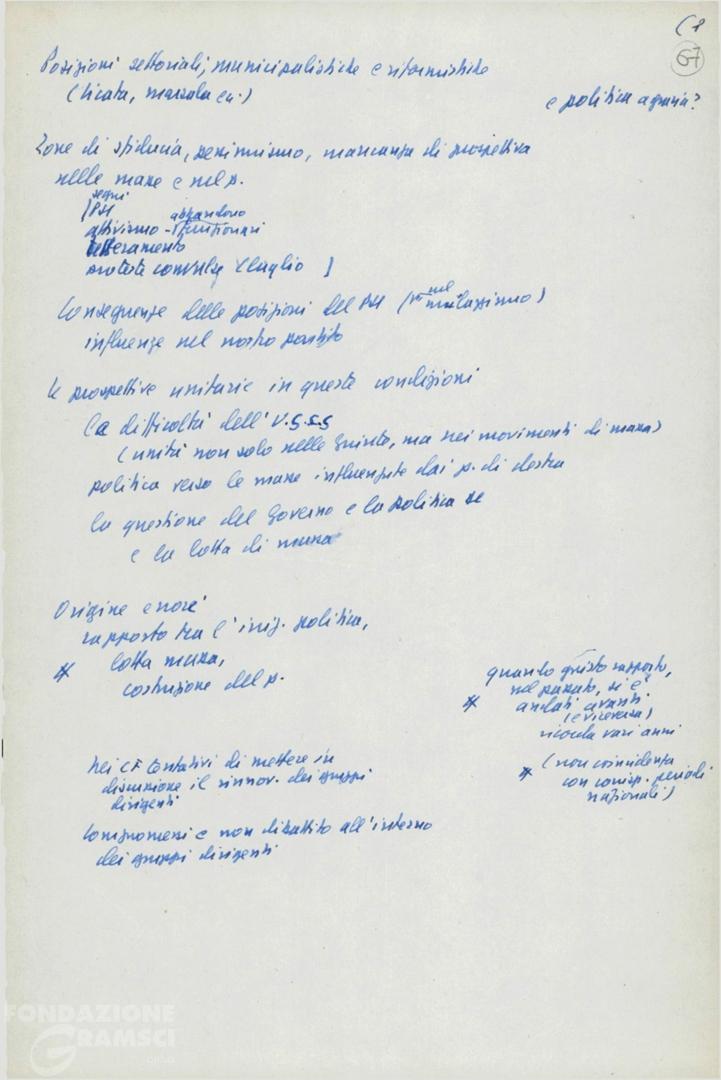 (8
67
Posizioni settoriali, municipalistiche e riformistiche
(Licata, Marsala ecc.)
e politica agraria?
Zone di sfiducia, pessimismo, mancanza di prospettiva
nelle masse e nel p.
segni
[PSI abbandono
attivismo - funzionari
tesseramento
proteste luglio]
Conseguenze delle posizioni del PSI (nel milazzismo)
influenze nel nostro partito
le prospettive unitarie in queste condizioni
la difficoltà dell'U.S.C.S
(unità non solo nelle Giunte, ma nei movimenti di massa)
politica verso le masse influenzate dai p. di destra
la questione del Governo e la politica
e la lotta di massa
Origine errori
rapporto tra l'iniz. politica,
* lotta massa,
costruzione del p.
quando questo rapporto,
nel passato, si è
* andati avanti.
(e viceversa)
ricorda vari anni
* (non coincidenza
con corrisp. periodi
nazionali)
Nei CF tentativi di mettere in
discussione il rinnov. dei gruppi
dirigenti
Compromessi e non dibattito all'interno
dei gruppi dirigenti
FONDAZIONE
GRAMSCI